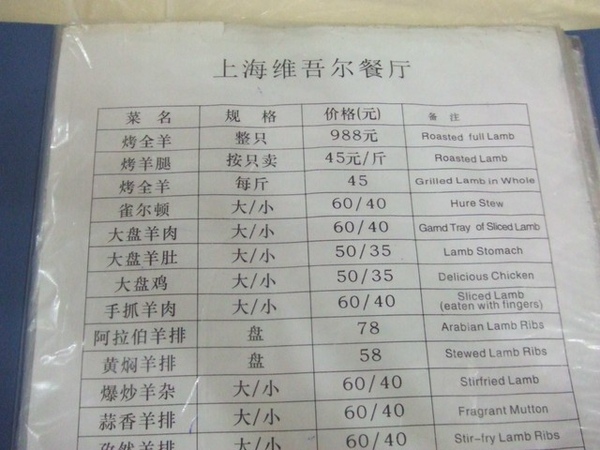 上海维吾尔餐厅
菜 名 规 格 价格(元) 备 注
烤全羊 整只 988元 Roasted full Lamb
烤羊腿 按只卖 45元/斤 Roasted Lamb
烤全羊 每斤 45 Grilled Lamb in Whole
雀尔顿 大/小 60/40 Hure Stew
大盘羊肉 大/小 60/40 Gamd Tray of Sliced Lamb
大盘羊肚 大/小 50/35 Lamb Stomach
大盘鸡 大/小 50/35 Delicious Chicken
手抓羊肉 大/小 60/40 Sliced Lamb
(eaten with fingers)
阿拉伯羊排 盘 78 Arabian Lamb Ribs
黄焖羊排 盘 58 Stewed Lamb Ribs
爆炒羊杂 大/小 60/40 Stirfried Lamb
蒜香羊排 大/小 60/40 Fragrant Mutton
孜然羊排 大/小 60/40 Stir-fry Lamb Ribs